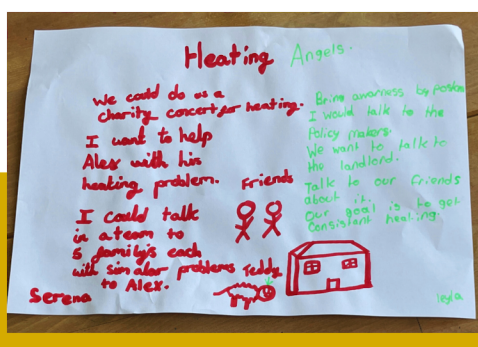 Heating Angels.
We could do us a
charity concert for heating.
I want to help
Alex with his
heating problem.
I could talk
in a team to
5 family's each
with simalar problems
to Alex.
Serena
Friends
Teddy
Bring awarness by posters
I would talk to the
Policy makers.
We want to talk to
the landlord.
Talk to our friends
about it.
Our goal is to get
Consistant heating.
leyla